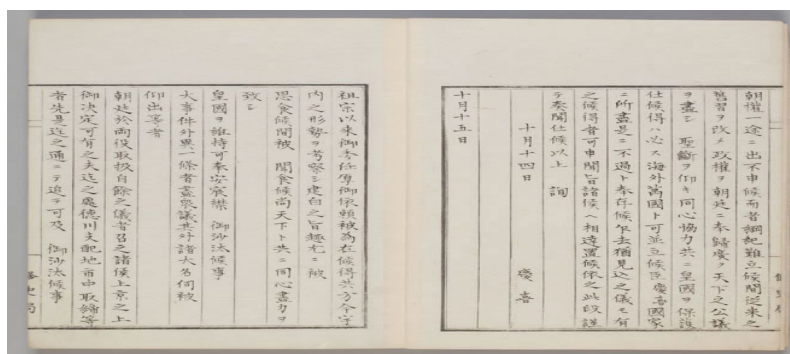 朝權一途ニ出不申候而者綱紀難立候間從來之
舊習ヲ改メ政權ヲ朝廷ニ奉歸廣ク天下之公議
ヲ盡シ 聖斷ヲ仰キ同心協力共ニ皇國ヲ保護
仕候得ハ必ス海外萬國ト可並立候臣慶喜國家
ニ所盡是ニ不過ト奉存候乍去猶見込之儀モ有
之候得者可申聞旨諸侯ヘ相達置候依之此段謹
テ奏聞仕候以上 詢
十月十四日 慶喜
十月十五日
祖宗以來御委任厚御依賴被為在候得共方今宇
內之形勢ヲ考察シ建白之旨趣尤ニ被
思食候間被 聞食候尚天下ト共ニ同心盡力ヲ
致シ
皇國ヲ維持可奉安宸襟 御沙汰候事
大事件外異一條者盡衆議其外諸大名伺被
仰出等者
朝廷於兩役取扱自餘之儀者召之諸侯上京之上
御決定可有之夫迄之處德川支配地市中取締等
者先是迄之通ニテ追テ可及 御沙汰候事